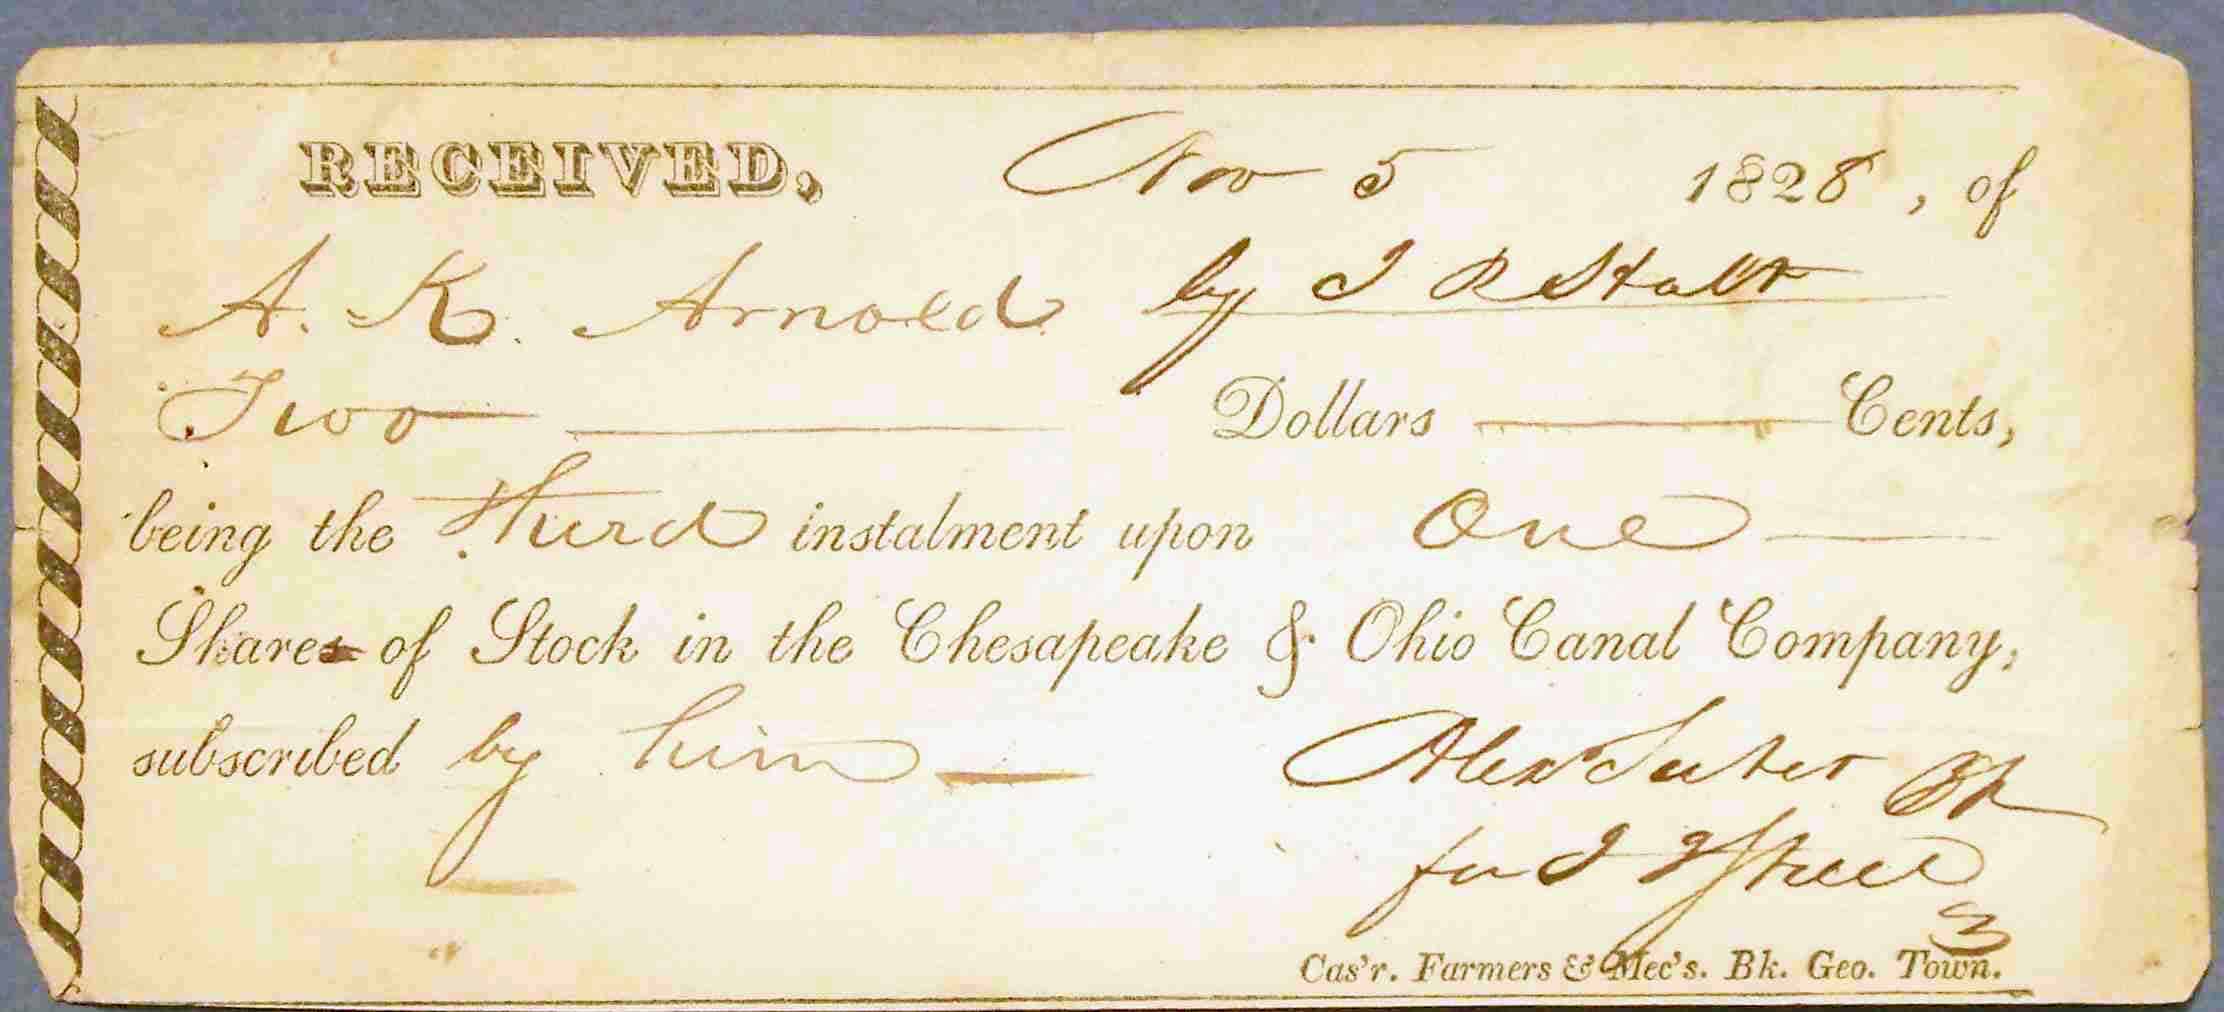 RECEIVED, Nov 5 1828, of
A. K. Arnold by J R Stull
Two Dollars Cents,
being the third instalment upon One
Shares of Stock in the Chesapeake & Ohio Canal Company,
subscribed by him Alex Suter
for J I
3
Cas'r. Farmers & Mec's. Bk. Geo. Town.